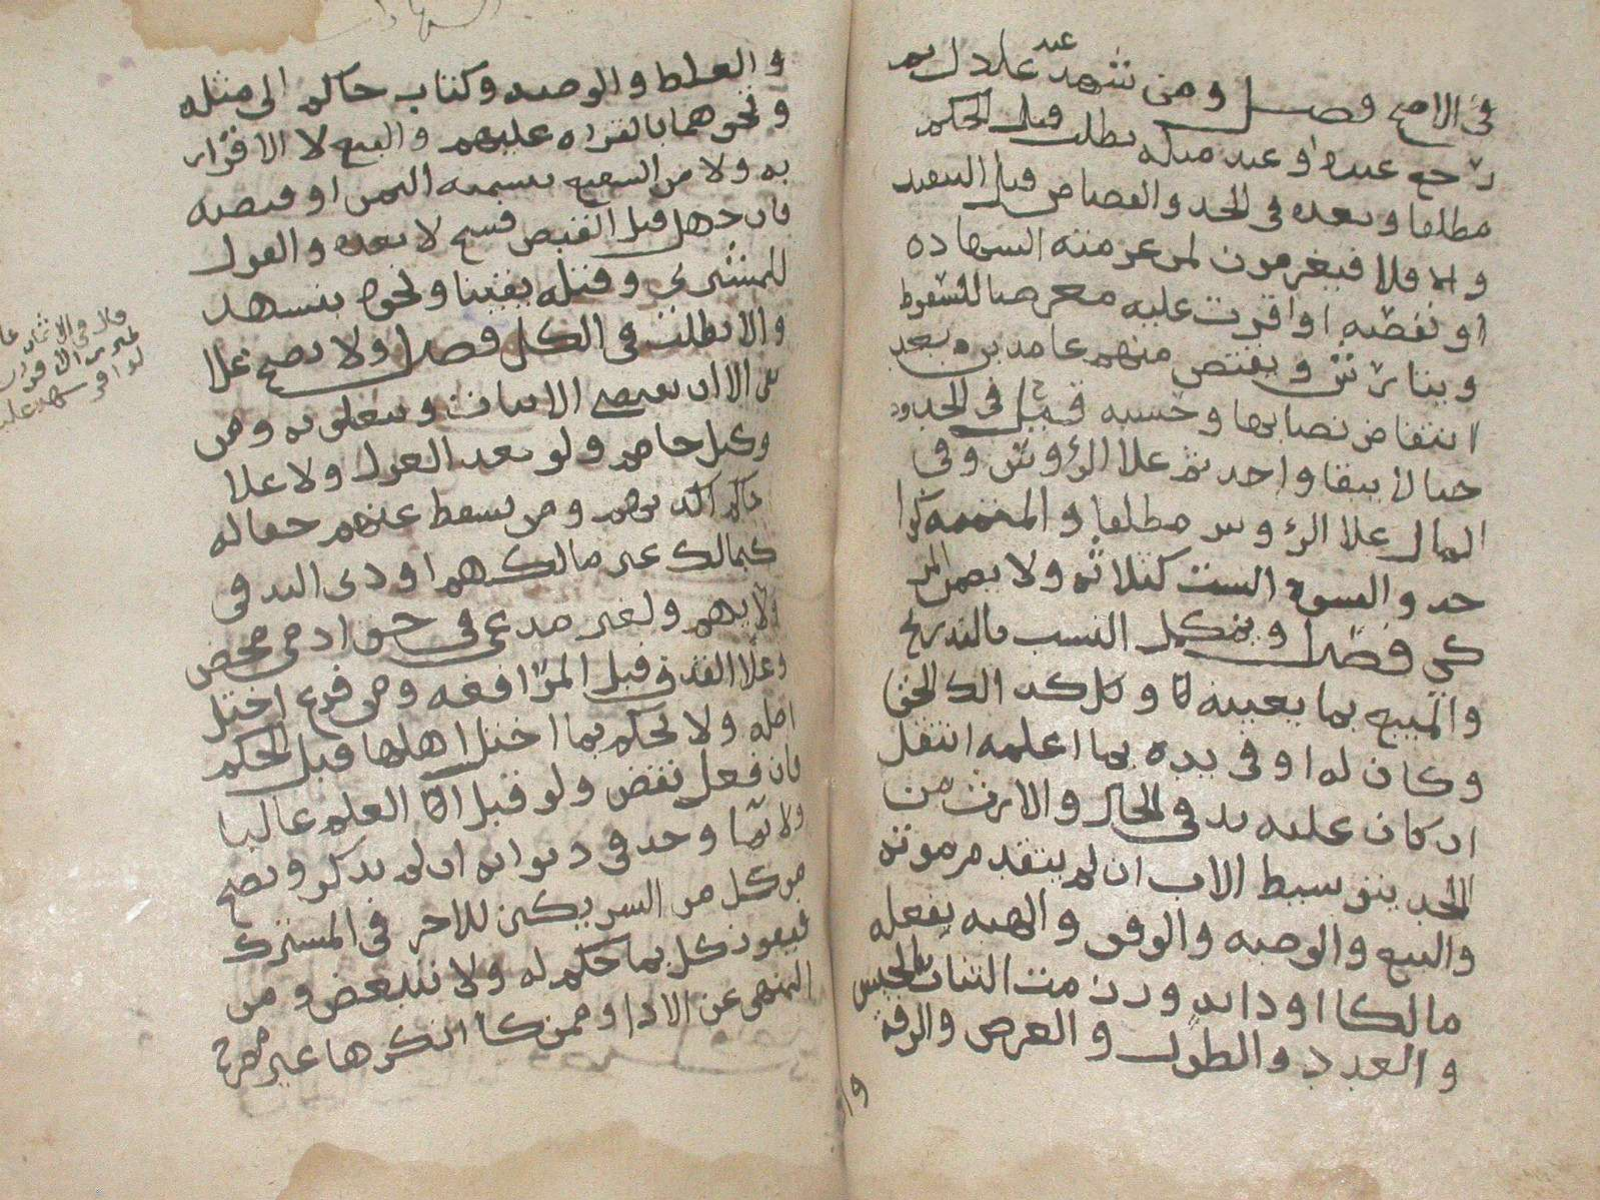 في الاصح فصل ومن شهد عند عادل ثم
رجع عنده او عند مثله بطلت قبل الحكم
مطلقا وبعده في الحد والقصاص قبل التنفيذ
والا فلا فيغرمون لمن غرمته الشهاده
او نقصته او اقرت عليه معرضا للسقوط
ويتارش ويقتص منهم عامدين بعد
انتقاض نصابها وحسبه قيل في الحدود
حتى لا يبقا واحد ثم على الرؤوس وفي
المال على الرؤوس مطلقا والمتممه كوا
حد والنسوه الست كثلاثه ولا يضمن المز
كي فصل ويكمل النسب بالتدريج
والمبيع بما يعينه لا وكل كذا الحق
وكان له او في يده بما اعلمه انتقل
ان كان عليه يد في الحال والارث من
الجد بتوسيط الاب ان لم يتقدم موته
والبيع والوصيه والوقف والهبه بفعله
مالكا او ذا يد ورزمت الثياب الجنس
والعدد والطول والعرض والرقه
و
والغلظ والوصيه وكتاب حاكم الى مثله
ونحوهما بالقراه عليهم والبيع لا الاقرار
به ولا من الشفيع بتسميه الثمن او قبضه
فان جهل قبل القبض فسخ لا بعده والقول
للمشتري وقتله يقينا ونحوه بنشهد
والا بطلت في الكل فصل ولا يصح على
نفي الا ان يقتضي الاثبات ويتعلق به ومن
وكيل خاصم ولو بعد العزل ولا على
حاكم اكذبهم ومن يسقط عنهم حقا له
كمالك غير مالكهم او ذي اليد في
ولايدهم ولغير مدعي في حق ادمي محض
وعلى القذف قبل المرافعه ومن فرع اختل
اصله ولا يحكم بما اختل اهلها قبل الحكم
فان فعل نقض ولو قبل العلم غالبا
ولا بما وجد في ديوانه ان لم يذكر ويصح
من كل من الشريكين للاخر في المشترك
فيفوز كل بما حكم له ولا تتبعض ومن
المنهي عن الادا وممن كان انكرها غير مصرح